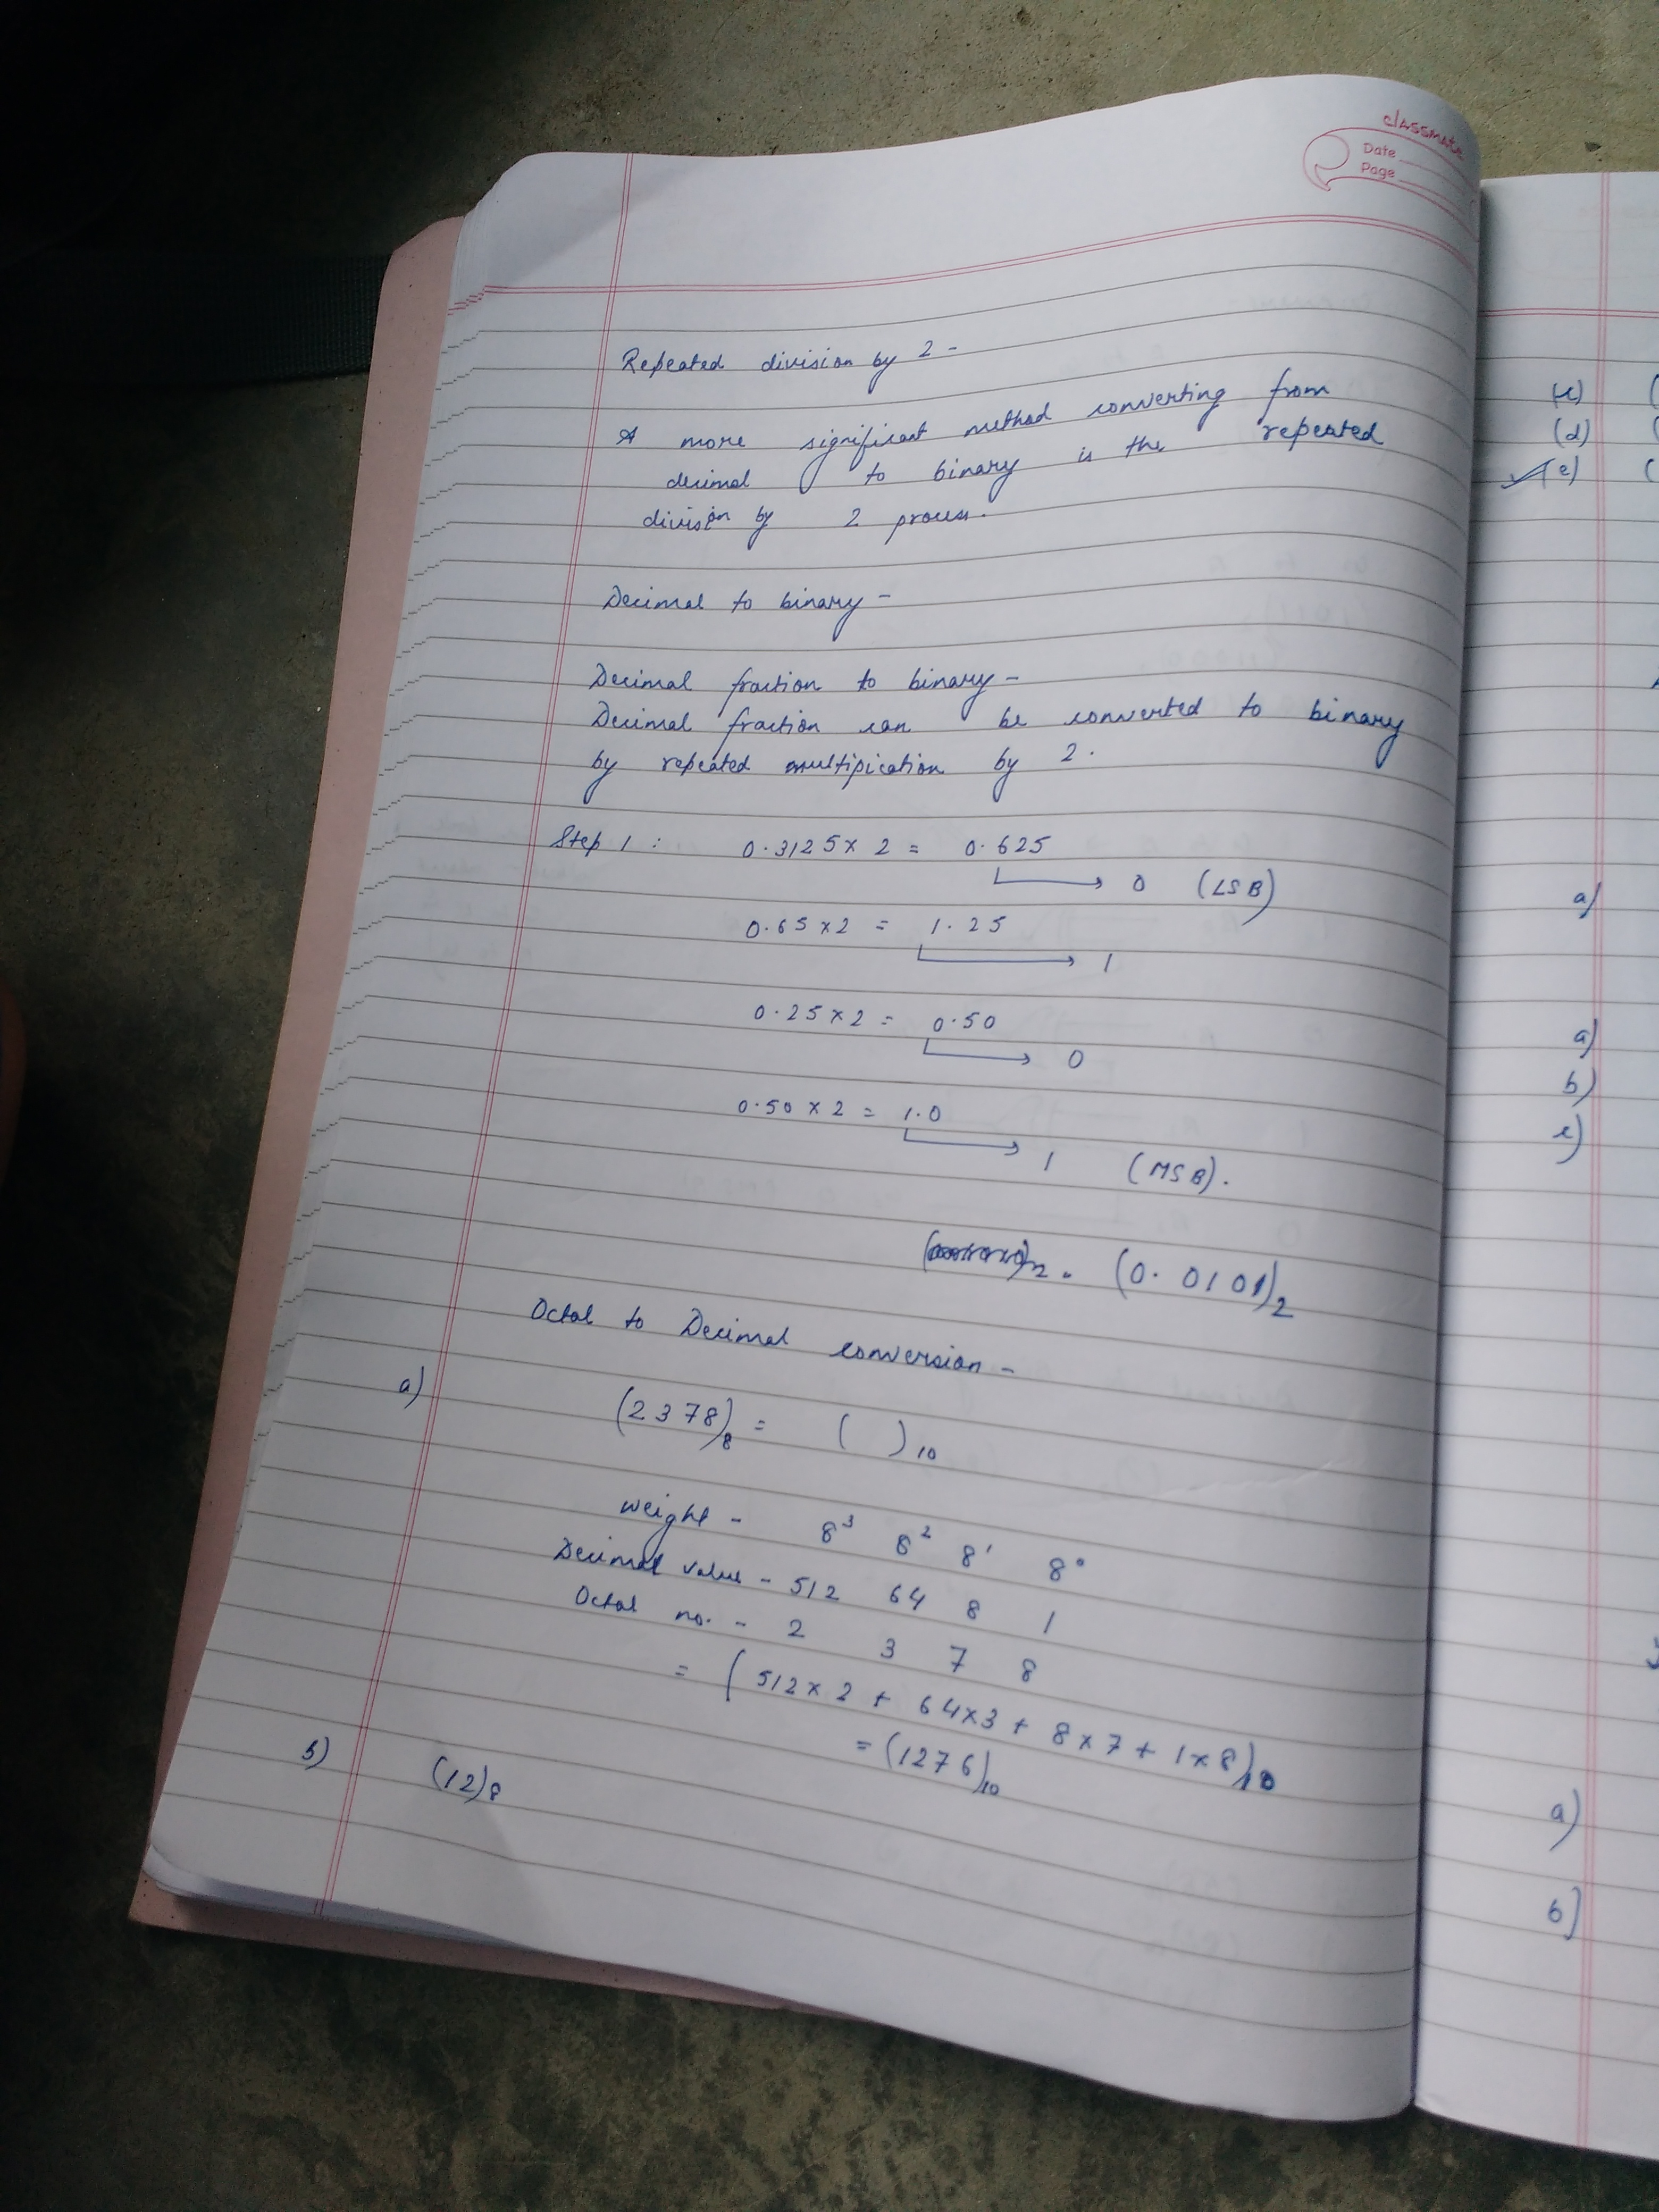 classmate
Date
Page
Repeated division by 2 -
A more significant method converting from
decimal to binary is the repeated
division by 2 process.
Decimal to binary -
Decimal fraction to binary -
Decimal fraction can be converted to binary
by repeated multipication by 2.
Step 1 : 0.3125 x 2 = 0.625
0 (LSB)
0.65 x 2 = 1.25
1
0.25 x 2 = 0.50
0
0.50 x 2 = 1.0
1 (MSB).
(0.0101)2
Octal to Decimal conversion -
a) (2378)8 = ( )10
weight - 8³ 8² 8¹ 8⁰
Decimal value - 512 64 8 1
Octal no. - 2 3 7 8
= (512 x 2 + 64 x 3 + 8 x 7 + 1 x 8)10
= (1276)10
b) (12)8
(c)
(d)
(e)
a)
a)
b)
c)
a)
b)